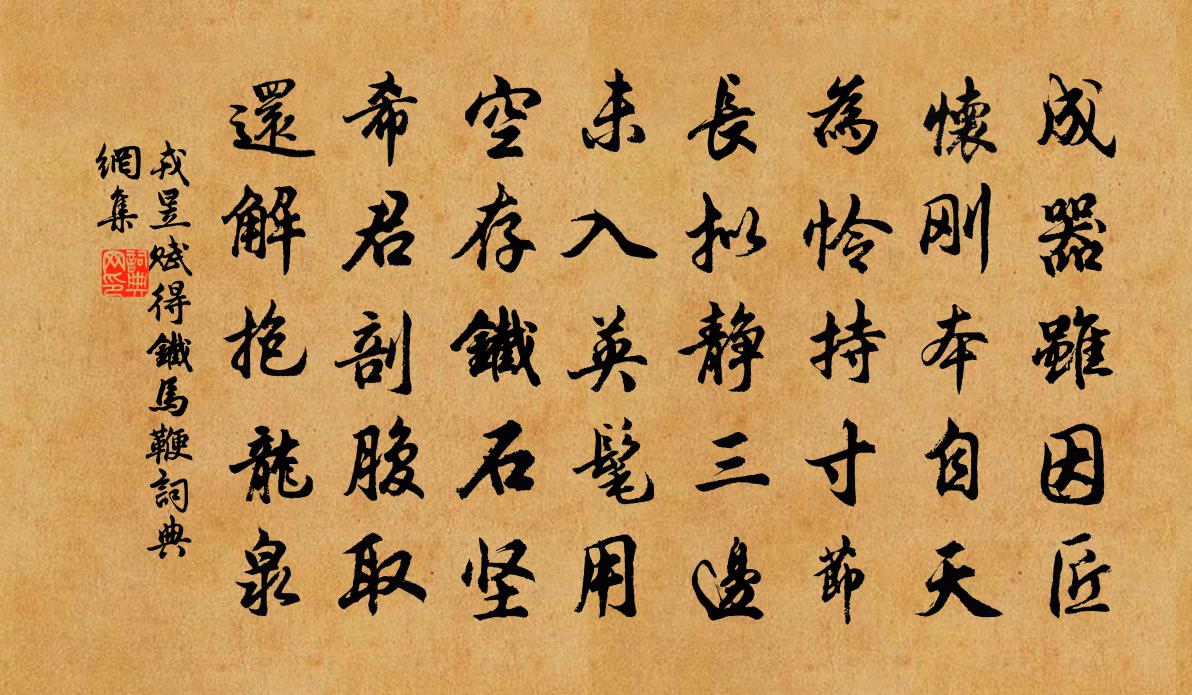 成器雖因匠
懷刚本自天
為怜持寸節
長拟靜三邊
未入英髦用
空存鐵石坚
希君剖腹取
還解抱龍泉
戎昱賦得鐵馬鞭詞典
網集
詞典
网印